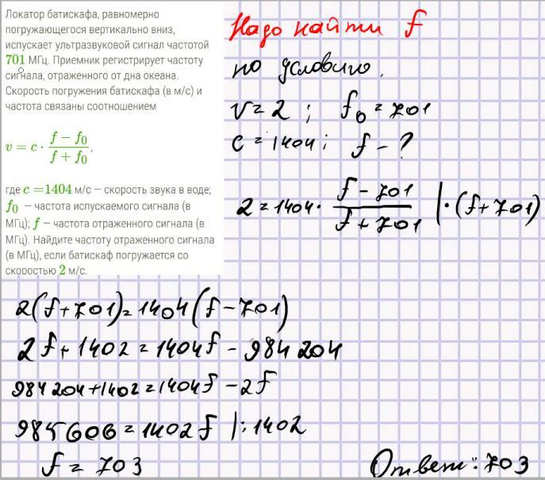 Локатор батискафа, равномерно
погружающегося вертикально вниз,
испускает ультразвуковой сигнал частотой
701 МГц. Приемник регистрирует частоту
сигнала, отраженного от дна океана.
Скорость погружения батискафа (в м/с) и
частота связаны соотношением
v = c · \frac{f − f₀}{f + f₀},
где c =1404 м/с – скорость звука в воде;
f₀ – частота испускаемого сигнала (в
МГц); f – частота отраженного сигнала (в
МГц). Найдите частоту отраженного сигнала
(в МГц), если батискаф погружается со
скоростью 2 м/с.
Надо найти f
по условию.
v=2 ; f₀=701
c=1404; f - ?
2=1404· \frac{f-701}{f+701} |·(f+701)
2(f+701)=1404(f-701)
2f+1402=1404f-984204
984204+1402=1404f-2f
985606=1402f |:1402
f=703
Ответ: 703